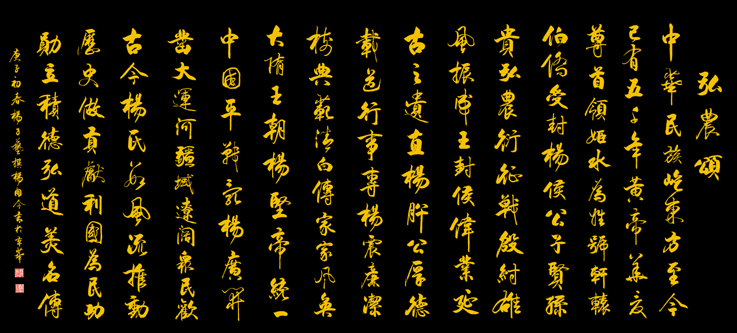 弘農頌
中華民族屹東方至今
已有五千年黃帝華夏
尊首領姬水為姓號軒轅
伯僑受封楊侯公子賢孫
貴弘農衍征戰殷紂雄
風振武王封侯偉業延
古之遺直楊肸公厚德
載道行事專楊震廉潔
楷典範清白傳家家風奐
大隋王朝楊堅帝統一
中國平戰亂楊廣開
鑿大運河疆域遼闊衆民歡
古今楊氏多風流推動
歷史做貢獻利國為民功
勛立積德弘道美名傳
庚子初春楊子撰楊書於京華